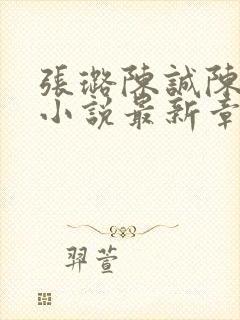 張璐陳誠陳
小說最新章
羿萱